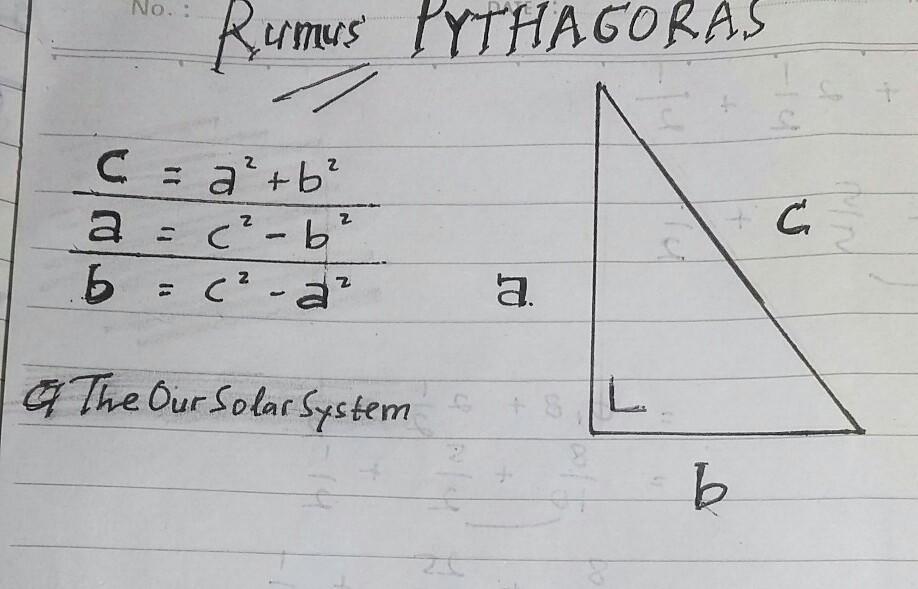 No. :
Rumus PYTHAGORAS
c = a² + b²
a = c² - b²
b = c² - a²
a.
c
b
@ The Our Solar System